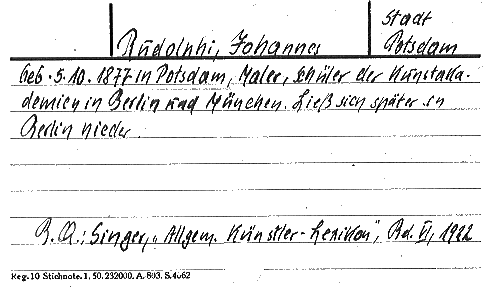 Stadt
Rudolphi, Johannes Potsdam
geb. 5.10.1877 in Potsdam, Maler, Schüler der Kunstaka-
demien in Berlin und München. Ließ sich später in
Berlin nieder.
B.Q.: Singer, "Allgem. Künstler-Lexikon", Bd. VI, 1922
Reg. 10 Stichnote. 1, 50. 232000. A. 803. S. 4062